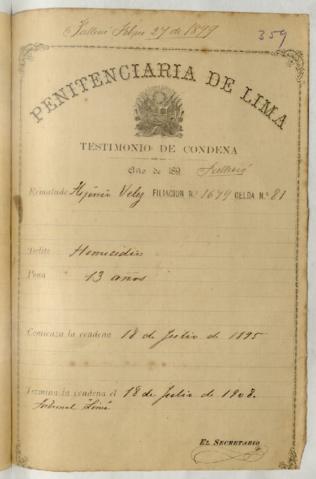 Falleció Febro 27 de 1899
359
PENITENCIARIA DE LIMA
TESTIMONIO DE CONDENA
Año de 189 Falleció
Rematado Hijinio Velez FILIACION N.º 1679 CELDA N.º 81
Delito Homicidio
Pena 13 años
Comienza la condena 18 de Julio de 1895
Termina la condena el 18 de Julio de 1908.
Tribunal "Lima"
EL SECRETARIO